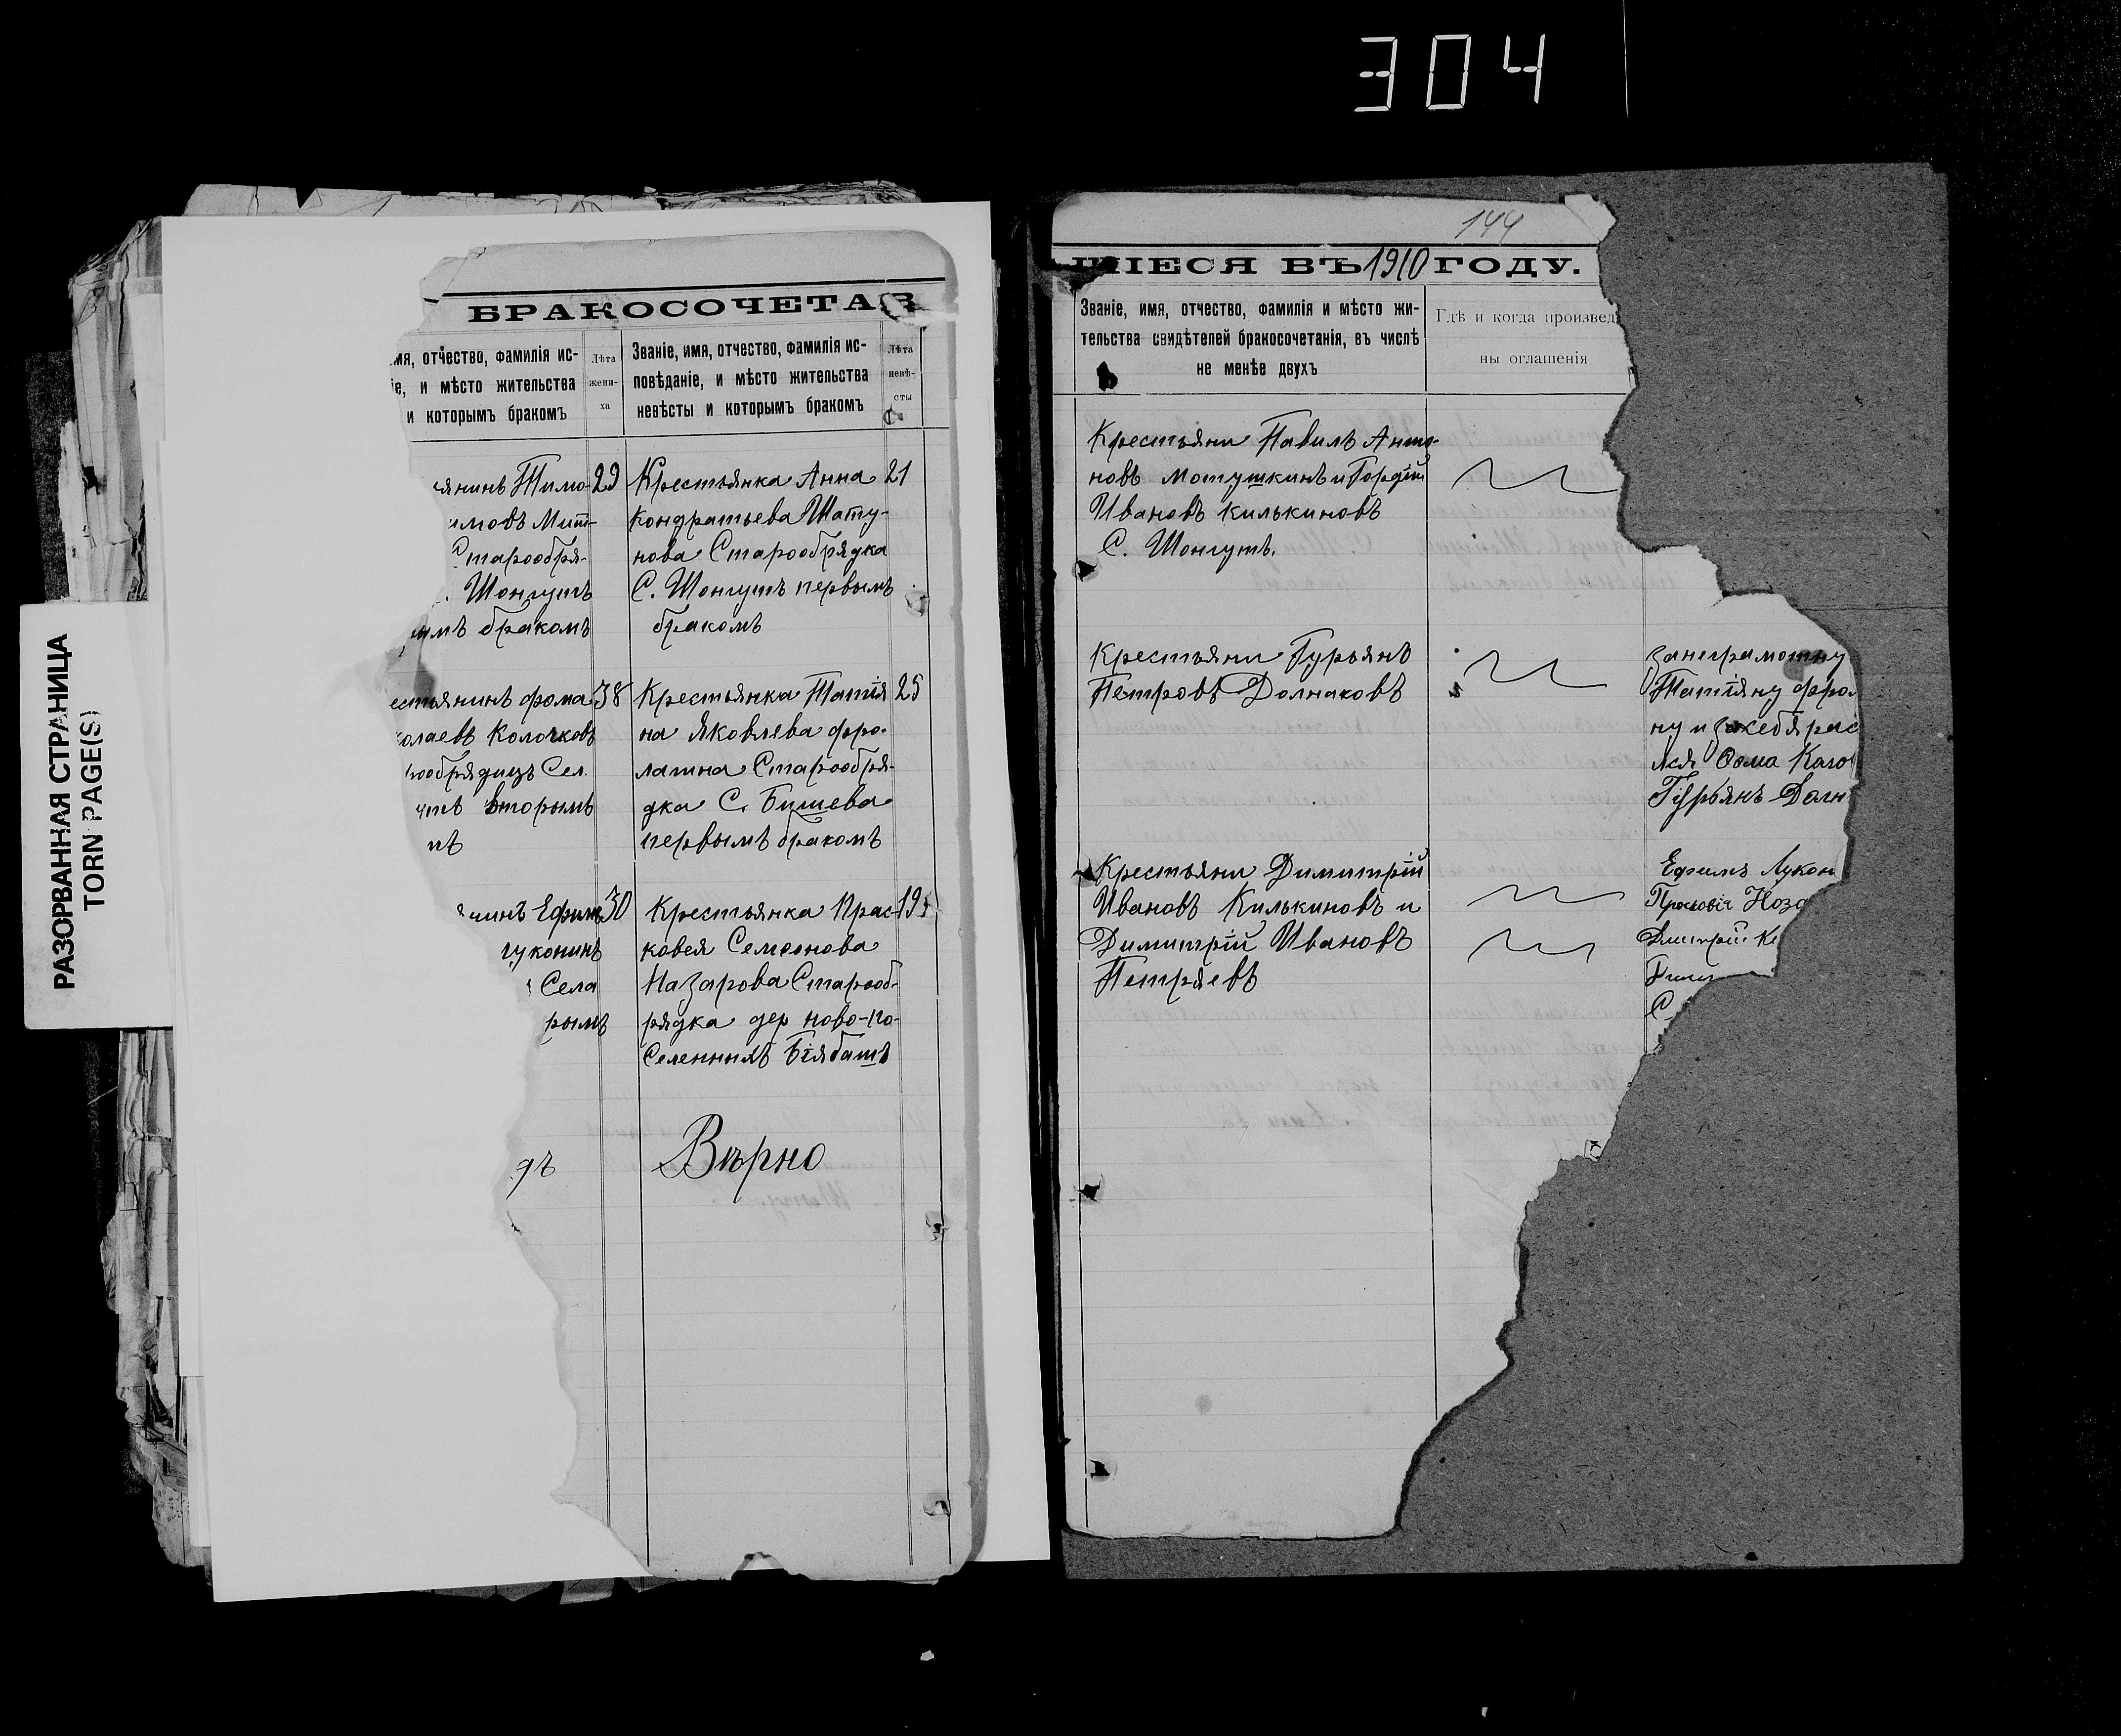 304
РАЗОРВАННАЯ СТРАНИЦА
TORN PAGE(S)
БРАКОСОЧЕТА
мя, отчество, фамилія ис-
іе, и мѣсто жительства
и которымъ бракомъ
Лѣта
жени-
ха
Званіе, имя, отчество, фамилія ис-
повѣданіе, и мѣсто жительства
невѣсты и которымъ бракомъ
Лѣта
невѣ-
сты
янинъ Тимо-
имовъ Мит-
Старообря-
Шонгутъ
ымъ бракомъ
29
Крестьянка Анна
Кондратьева Шату-
нова Старообрядка
С. Шонгутъ первымъ
бракомъ
21
естьянинъ фома
колаевъ Колочковъ
рообрядцъ Сел.
утъ вторымъ
мъ
38
Крестьянка Татія
на Яковлева фро-
лапина Старообря-
дка С. Бишева
первымъ бракомъ
25
янинъ Ефимъ
луконинъ
Села
рымъ
30
Крестьянка Прас-
ковея Семеонова
Назарова Старооб-
рядка дер ново-по-
селенныхъ Біябашъ
19
дъ
Вѣрно
144
ШІЕСЯ ВЪ 1910 ГОДУ.
Званіе, имя, отчество, фамилія и мѣсто жи-
тельства свидѣтелей бракосочетанія, въ числѣ
не менѣе двухъ
Гдѣ и когда произвед
ны оглашенія
Крестьяни Павилъ Анто-
новъ мотушкинъ и Гордѣй
Ивановъ Килькиновъ
С. Шонгутъ.
Крестьяни Гурьянъ
Петровъ Долнаковъ
занеграмотну
Татіяну фро
ну и засебя рас
лся Фома Коло
Гурьянъ Долн
Крестьяни Димитрій
Ивановъ Килькиновъ и
Димитрій Ивановъ
Петряевъ
Ефимъ Лукон
Просковія Ноза
Дмитрій Ки
С